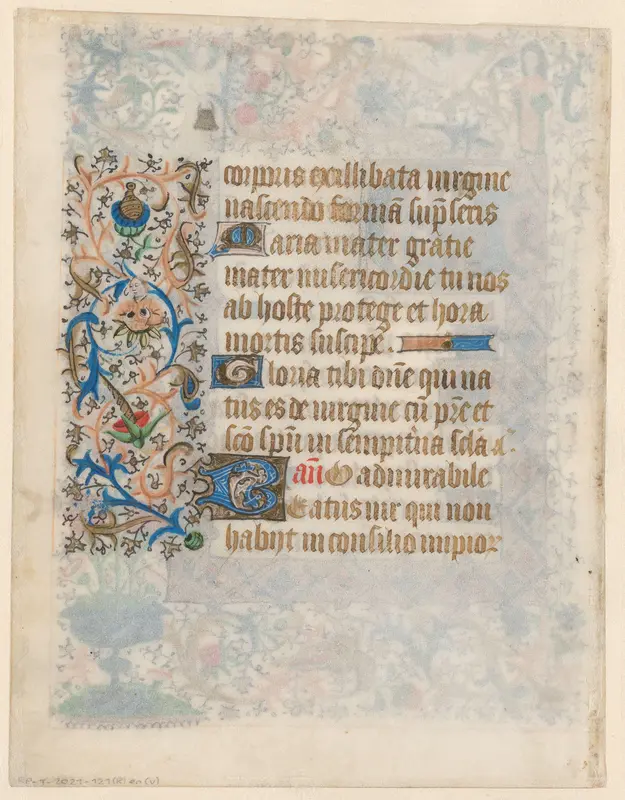 corpus ex illibata uirgine
nascendo formā sūpseris
Maria mater gratie
mater misericordie tu nos
ab hoste protege et hora
mortis suscipe.
Gloria tibi dn̄e qui na
tus es de uirgine cū pr̄e et
sc̄o sp̄u in sempit'na sc̄la
an̄ O admirabile
Beatus uir qui non
habijt in consilio impior